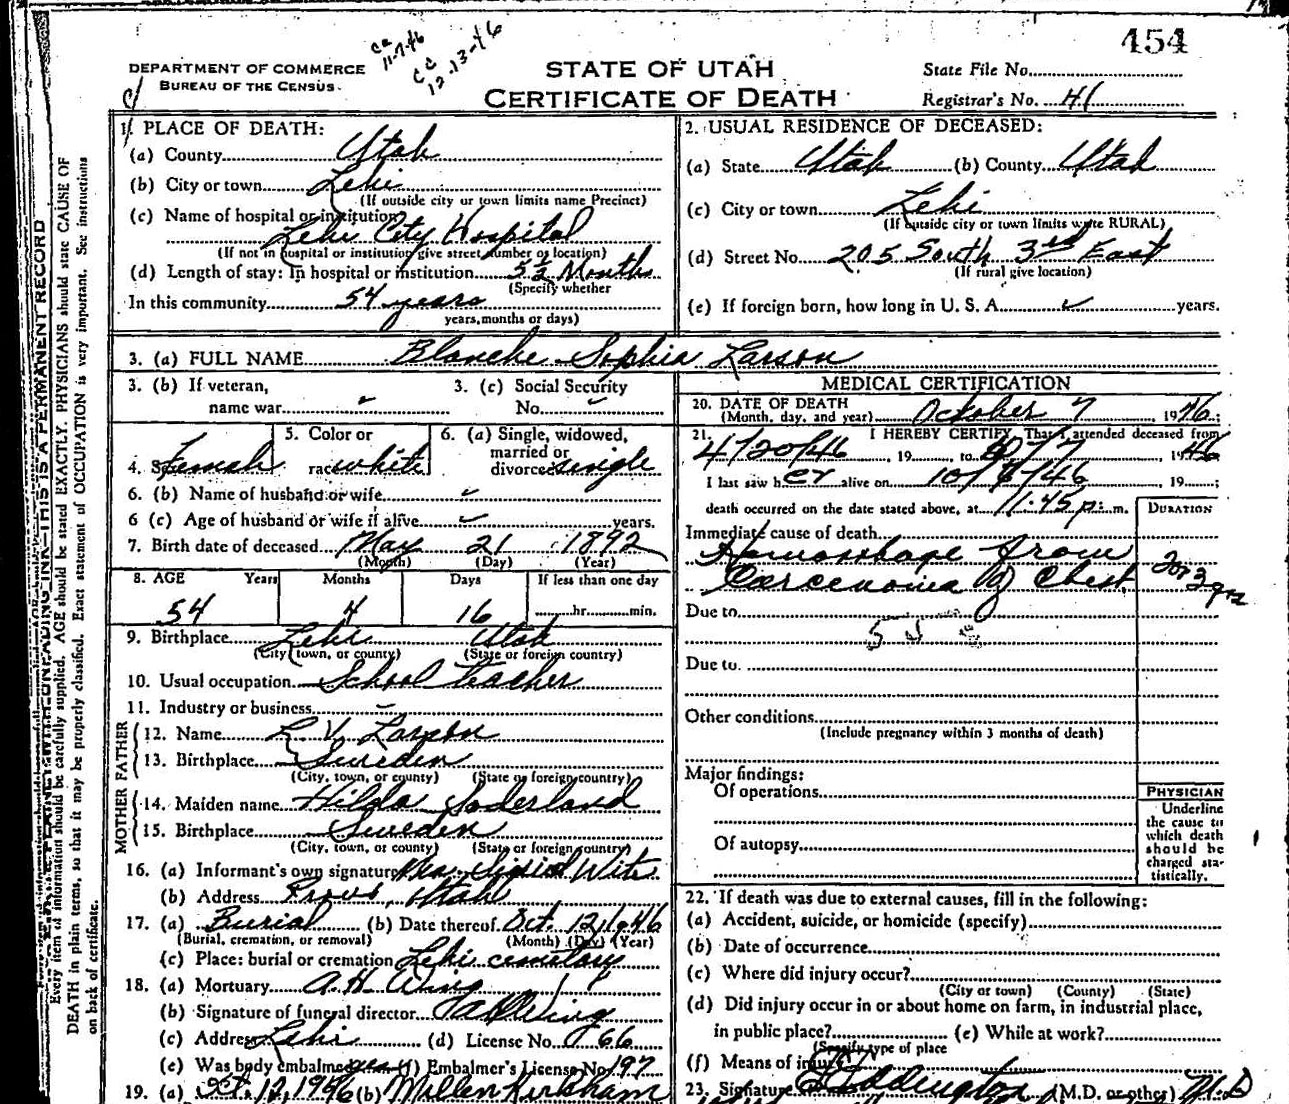 454
ca 11-7-46
cc 12-13-46
DEPARTMENT OF COMMERCE
BUREAU OF THE CENSUS
STATE OF UTAH
CERTIFICATE OF DEATH
State File No.
Registrar's No. 41
1. PLACE OF DEATH:
(a) County Utah
(b) City or town Lehi
(If outside city or town limits name Precinct)
(c) Name of hospital or institution
Lehi City Hospital
(If not in hospital or institution give street number or location)
(d) Length of stay: In hospital or institution 5½ Months
(Specify whether
In this community 54 years
years, months or days)
2. USUAL RESIDENCE OF DECEASED:
(a) State Utah (b) County Utah
(c) City or town Lehi
(If outside city or town limits write RURAL)
(d) Street No. 205 South 3rd East
(If rural give location)
(e) If foreign born, how long in U. S. A. years.
3. (a) FULL NAME Blanche Sophia Larson
3. (b) If veteran,
name war
3. (c) Social Security
No.
4. Sex Female
5. Color or
race white
6. (a) Single, widowed,
married or
divorced single
6. (b) Name of husband or wife
6 (c) Age of husband or wife if alive years.
7. Birth date of deceased May 21 1892
(Month) (Day) (Year)
8. AGE Years Months Days If less than one day
54 4 16 hr. min.
9. Birthplace Lehi Utah
(City, town, or county) (State or foreign country)
10. Usual occupation School teacher
11. Industry or business
FATHER
12. Name L. V. Larson
13. Birthplace Sweden
(City, town, or county) (State or foreign country)
MOTHER
14. Maiden name Hilda Soderlund
15. Birthplace Sweden
(City, town, or county) (State or foreign country)
16. (a) Informant's own signature
(b) Address Provo, Utah
17. (a) Burial (b) Date thereof Oct. 12, 1946
(Burial, cremation, or removal) (Month) (Day) (Year)
(c) Place: burial or cremation Lehi cemetary
18. (a) Mortuary A. H. Wing
(b) Signature of funeral director A H Wing
(c) Address Lehi (d) License No. 66
(e) Was body embalmed yes (f) Embalmer's License No. 197
19. (a) Oct. 12, 1946 (b) Millen Kirkham
MEDICAL CERTIFICATION
20. DATE OF DEATH
(Month, day, and year) October 7 1946:
21. I HEREBY CERTIFY, That I attended deceased from
4/20/46, 19 to 1946
I last saw her alive on 10/7/46 19
death occurred on the date stated above, at 11:45 p. m.
DURATION
Immediate cause of death
Hemorrhage from
Carcenoma of Chest
2 or 3 yrs
Due to
Due to
Other conditions
(Include pregnancy within 3 months of death)
Major findings:
Of operations
Of autopsy
PHYSICIAN
Underline
the cause to
which death
should be
charged sta-
tistically.
22. If death was due to external causes, fill in the following:
(a) Accident, suicide, or homicide (specify)
(b) Date of occurrence
(c) Where did injury occur?
(City or town) (County) (State)
(d) Did injury occur in or about home on farm, in industrial place,
in public place? (e) While at work?
(Specify type of place
(f) Means of injury
23. Signature Eddington (M.D. or other) M.D
Every item of information should be carefully supplied. AGE should be stated EXACTLY. PHYSICIANS should state CAUSE OF
DEATH in plain terms, so that it may be properly classified. Exact statement of OCCUPATION is very important. See instructions
on back of certificate.
THIS IS A PERMANENT RECORD